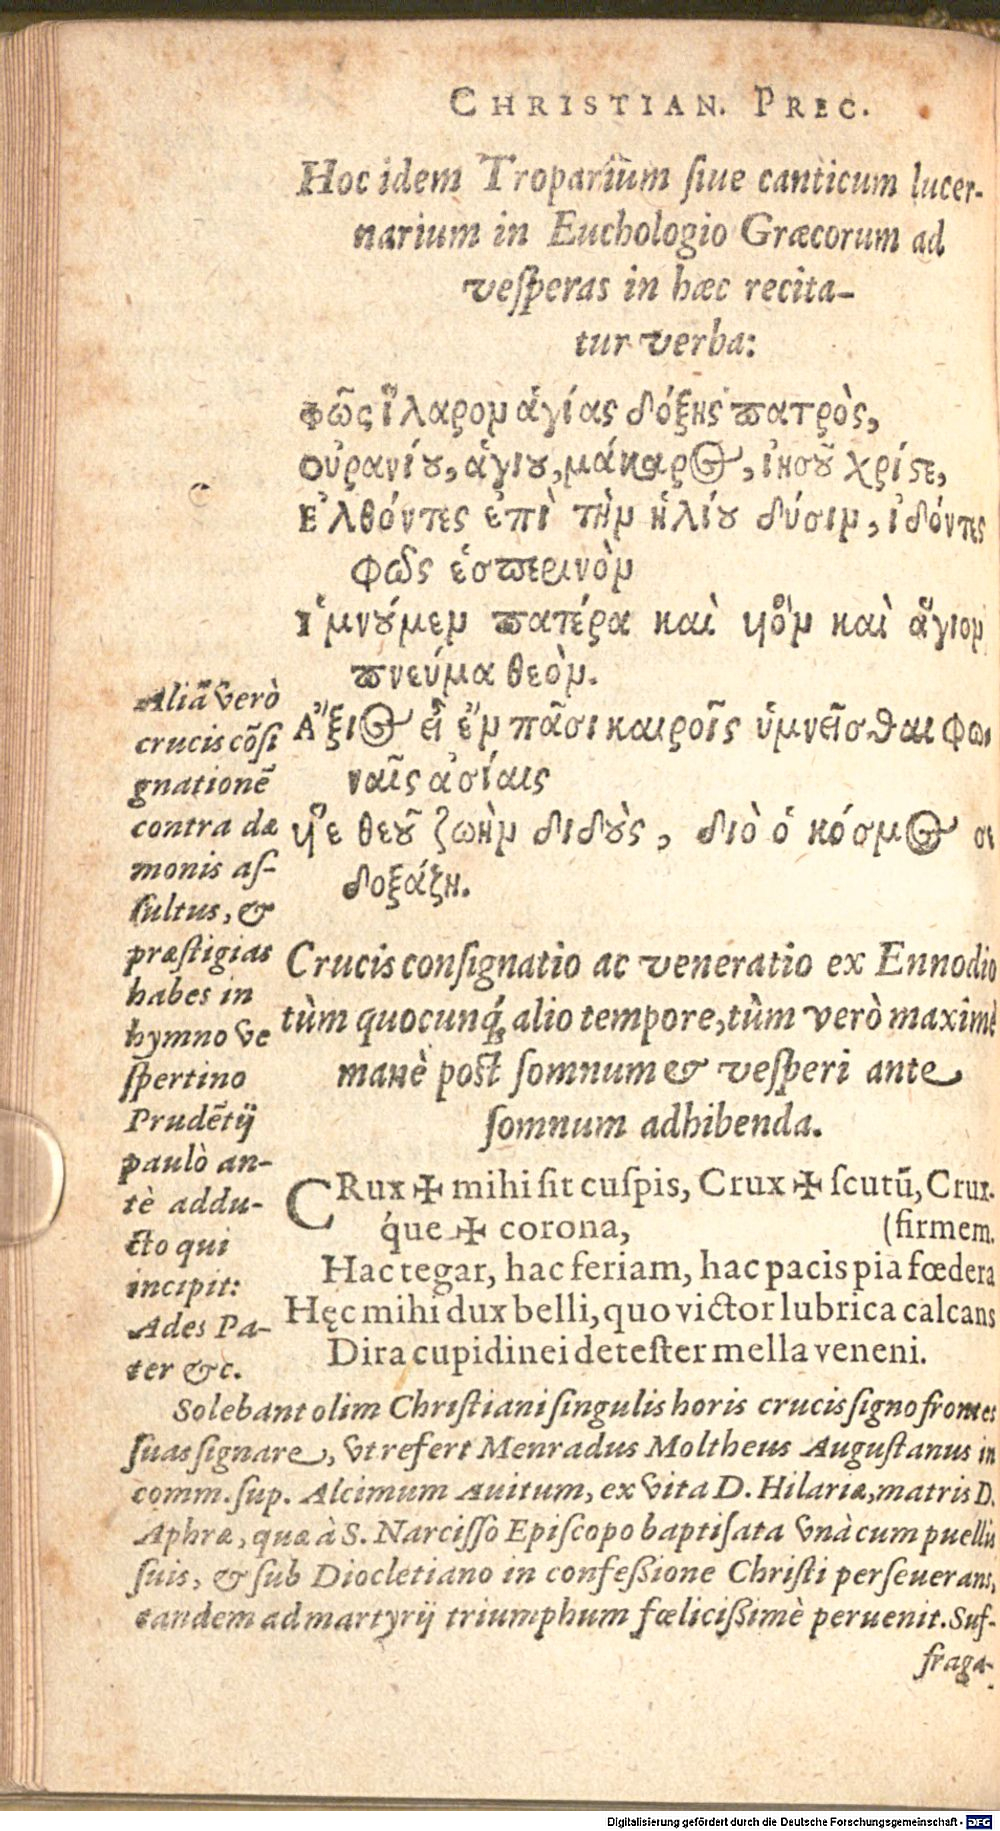 CHRISTIAN. PREC.
Hoc idem Troparium siue canticum lucer-
narium in Euchologio Græcorum ad
vesperas in hæc recita-
tur verba:
φῶς ἵλαρον ἁγίας δόξης πατρὸς,
οὐρανίου, ἁγίου, μάκαρος, ἰησοῦ χρίστε,
Ε᾿λθόντες ἐπὶ τὴν ἡλίου δύσιν, ἰδόντες
φῶς ἑσπερινὸν
Υ῾μνούμεν πατέρα καὶ υἱὸν καὶ ἅγιον
πνεύμα θεὸν.
Α῎ξιος εἶ ἔν πᾶσι καιροῖς ὑμνεῖσθαι φω
ναῖς ὁσίαις
υἱὲ θεοῦ ζωὴν διδοὺς, διὸ ὁ κόσμος σε
δοξάζη.
Aliā verò
crucis cōsi
gnationē
contra dæ
monis as-
sultus, &
præstigias
habes in
hymno ve
spertino
Prudētij
paulò an-
tè addu-
cto qui
incipit:
Ades Pa-
ter &c.
Crucis consignatio ac veneratio ex Ennodio
tùm quocunq; alio tempore, tùm verò maximè
manè post somnum & vesperi ante
somnum adhibenda.
CRux ✠ mihi sit cuspis, Crux ✠ scutū, Crux-
q́ue ✠ corona, (firmem.
Hac tegar, hac feriam, hac pacis pia fœdera
Hęc mihi dux belli, quo victor lubrica calcans
Dira cupidinei detester mella veneni.
Solebant olim Christiani singulis horis crucis signo frontes
suas signare, vt refert Menradus Moltheus Augustanus in
comm. sup. Alcimum Auitum, ex vita D. Hilariæ, matris D.
Aphræ, quæ à S. Narcisso Episcopo baptisata vnà cum puellis
suis, & sub Diocletiano in confessione Christi perseuerans,
tandem ad martyrij triumphum fœlicissimè peruenit. Suf-
fraga-
Digitalisierung gefördert durch die Deutsche Forschungsgemeinschaft - DFG